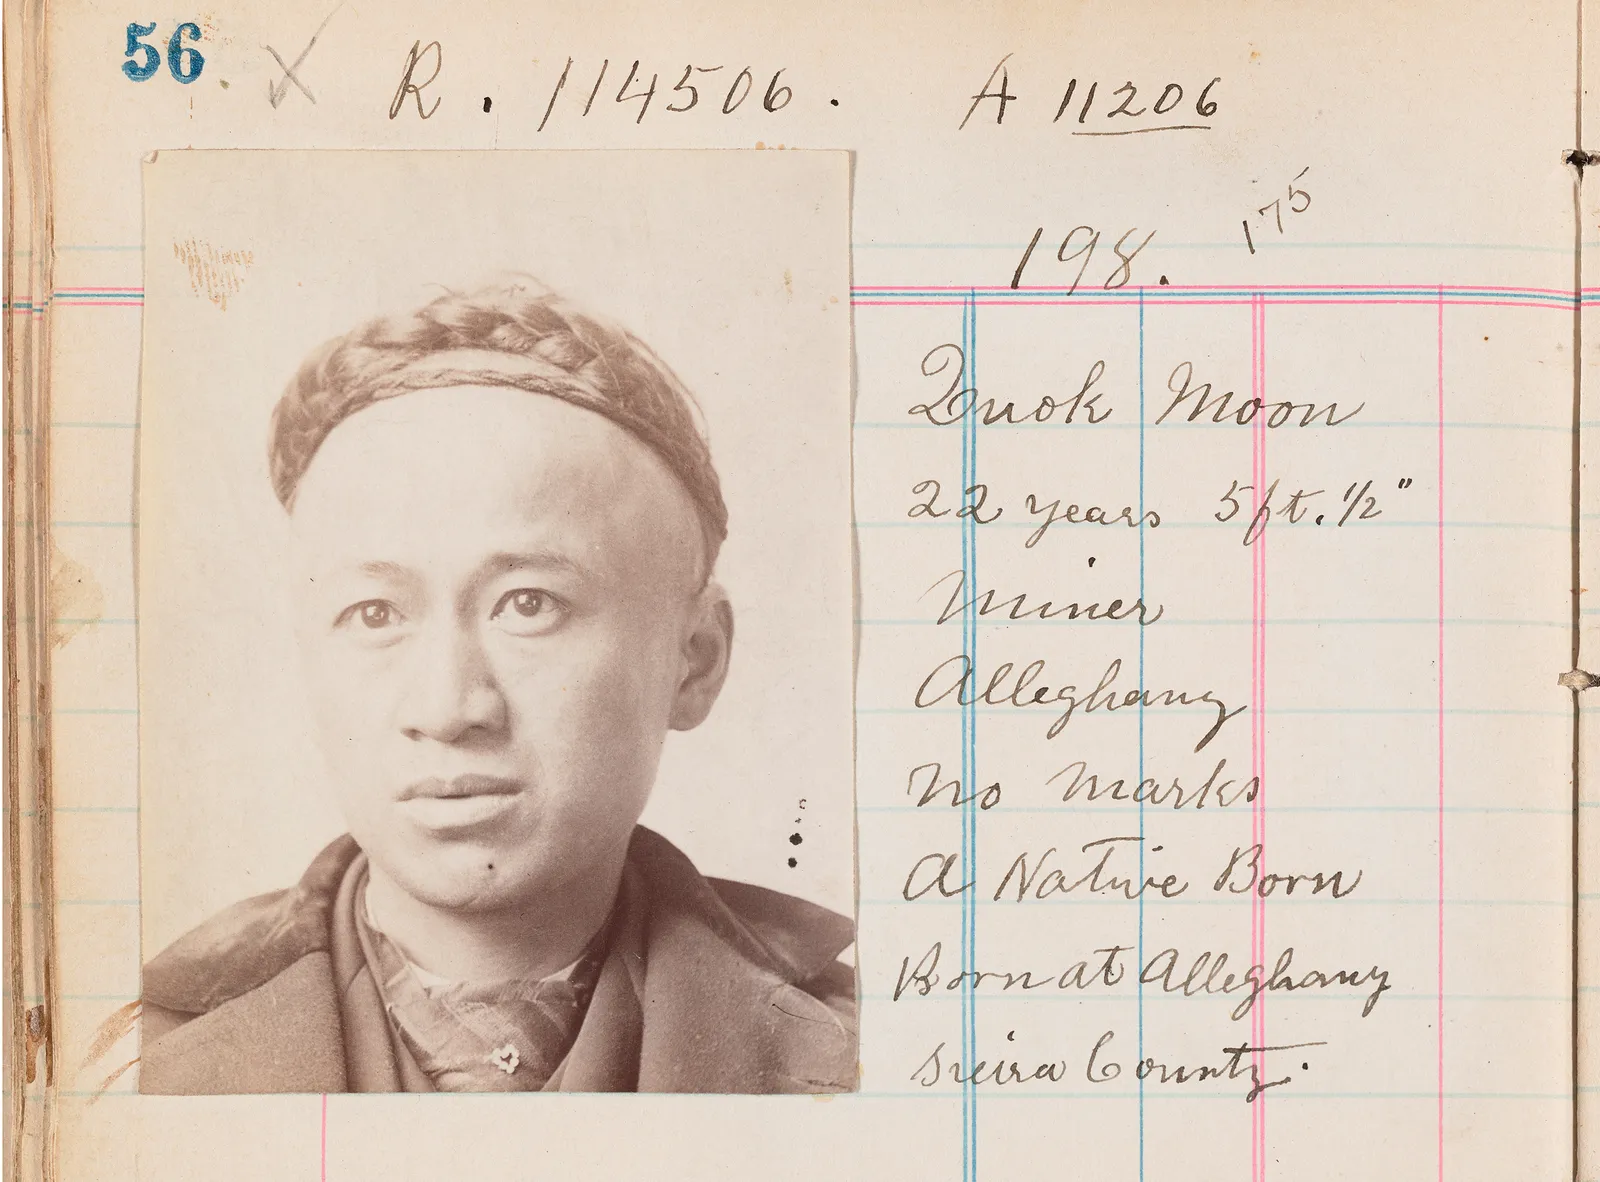 56
R. 114506. A 11206
175
198.
Quok Moon
22 years 5ft. 1/2"
Miner
Alleghany
No marks
A Native Born
Born at Alleghany
Sierra County.